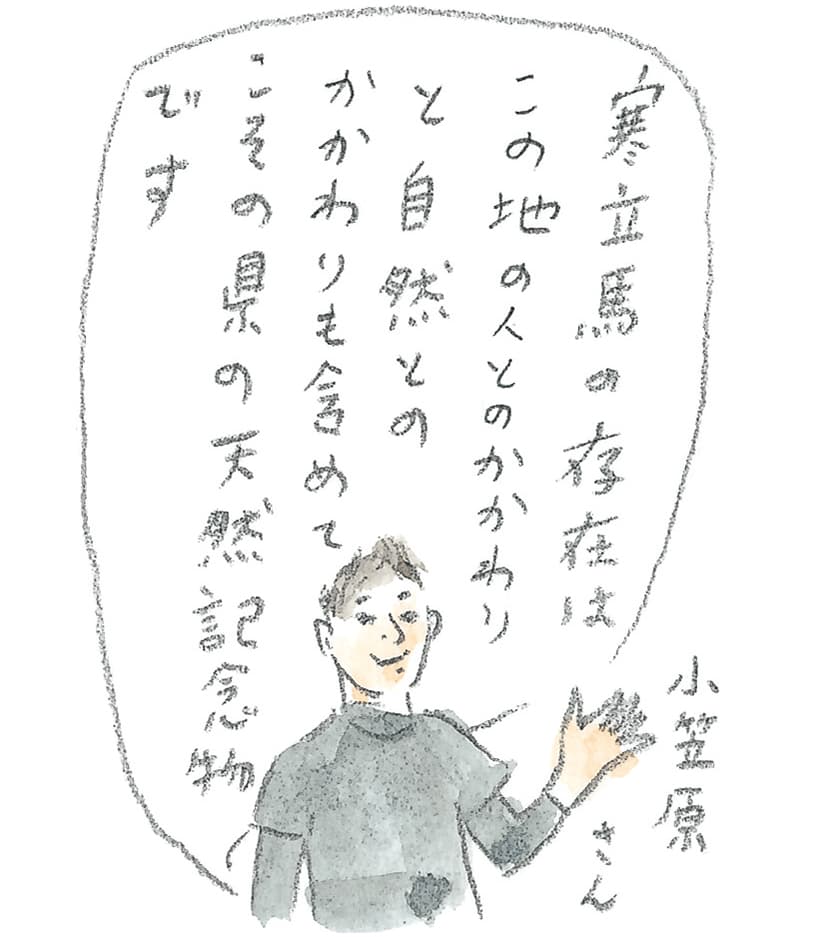 寒立馬の存在は
この地の人とのかかわり
と自然との
かかわりも含めて
こその県の天然記念物
です
小笠原
さん